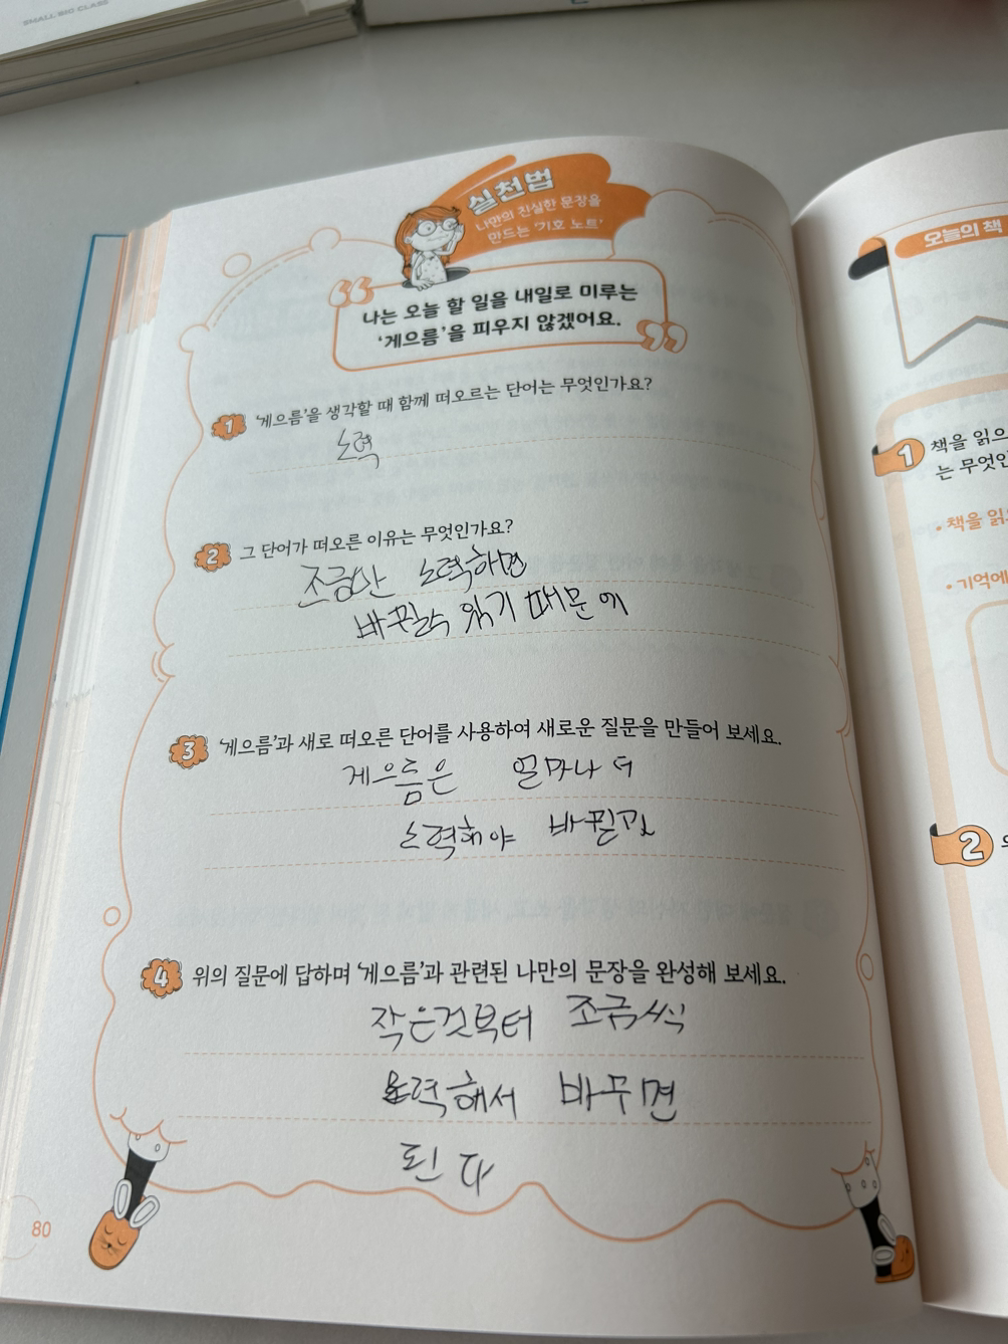 SMALL BIG CLASS
실천법
나만의 진실한 문장을
만드는 '기호 노트'
나는 오늘 할 일을 내일로 미루는
'게으름'을 피우지 않겠어요.
1 '게으름'을 생각할 때 함께 떠오르는 단어는 무엇인가요?
노력
2 그 단어가 떠오른 이유는 무엇인가요?
조금만 노력하면
바뀔수 있기 때문에
3 '게으름'과 새로 떠오른 단어를 사용하여 새로운 질문을 만들어 보세요.
게으름은 얼마나 더
노력해야 바뀔까
4 위의 질문에 답하며 '게으름'과 관련된 나만의 문장을 완성해 보세요.
작은것부터 조금씩
노력해서 바꾸면
된다
80
오늘의 책
1 책을 읽으
는 무엇인
• 책을 읽
• 기억에
2